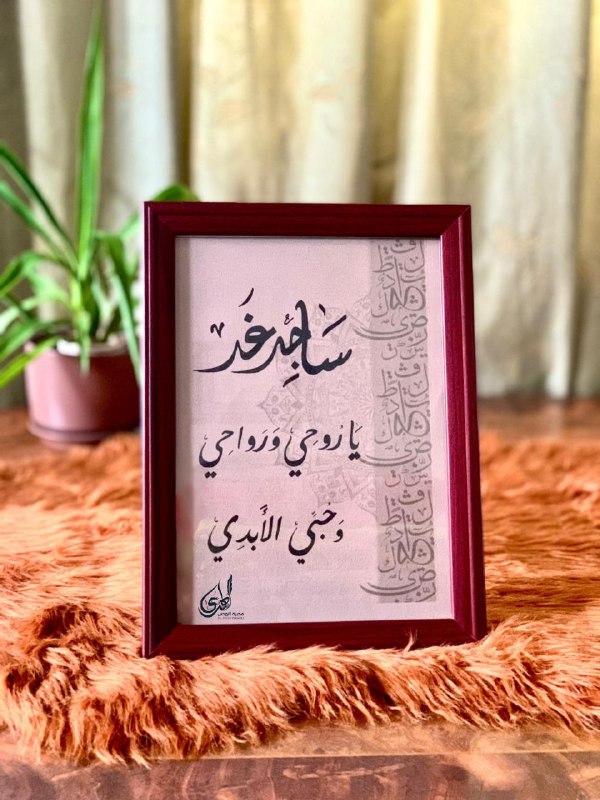 سَاجِد رغَد
يَا رُوحِي وَرَوَاحِي
وَحُبِّي الأَبَدِي